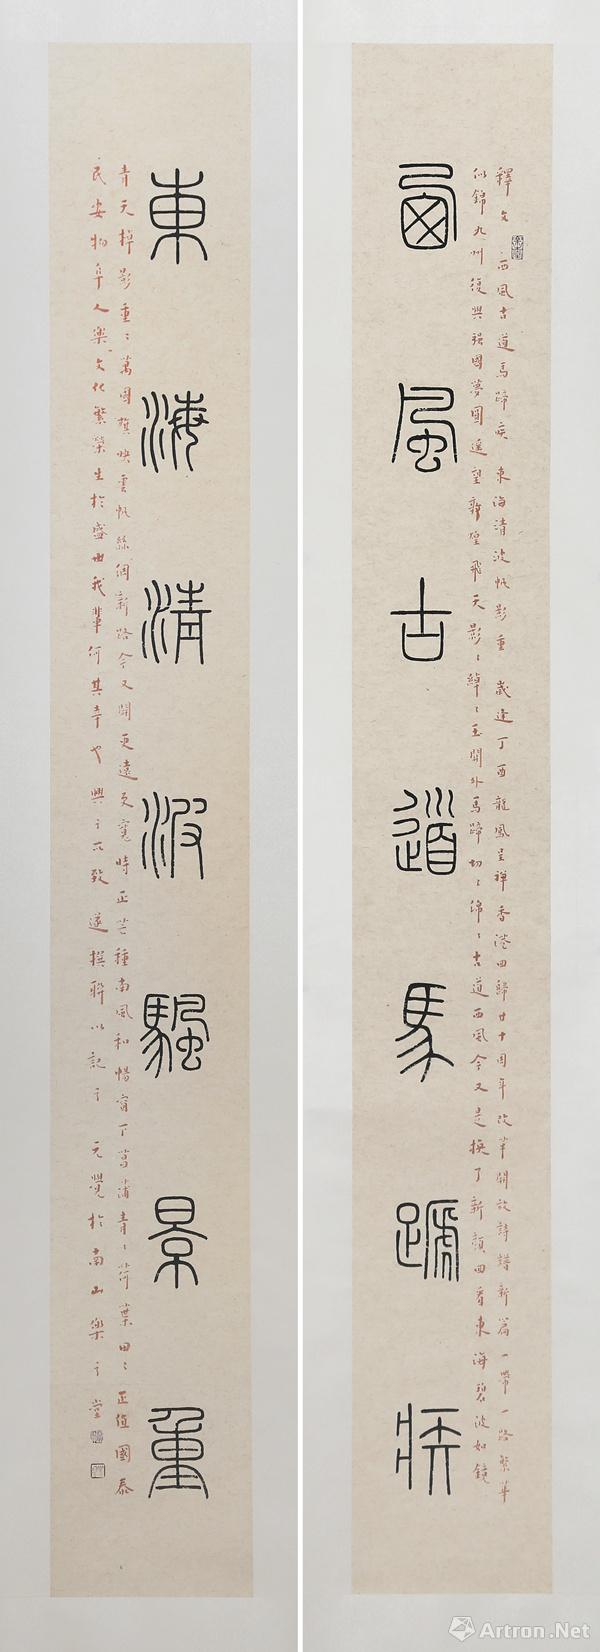 西風古道馬蹄疾
釋文 西風古道馬蹄疾 東海清波帆影重 歲逢丁酉龍鳳呈禪香港回歸廿十周年改革開放詩譜新篇一帶一路繁華
似錦九州復興強國夢圓遙望敦煌飛天影影綽綽玉關外馬蹄切切綿綿古道西風今又是換了新顏回看東海碧波如鏡
東海清波颿景重
青天棹影重重萬國旗映雲帆絲綢新路今又開更遠更寬時正芒種南風和暢窗下菖蒲青青荷葉田田正值國泰
民安物阜人樂文化繁榮生於盛世我輩何其幸也興之所致遂撰聯以記之 元覺於南山樂之堂
Artron.Net